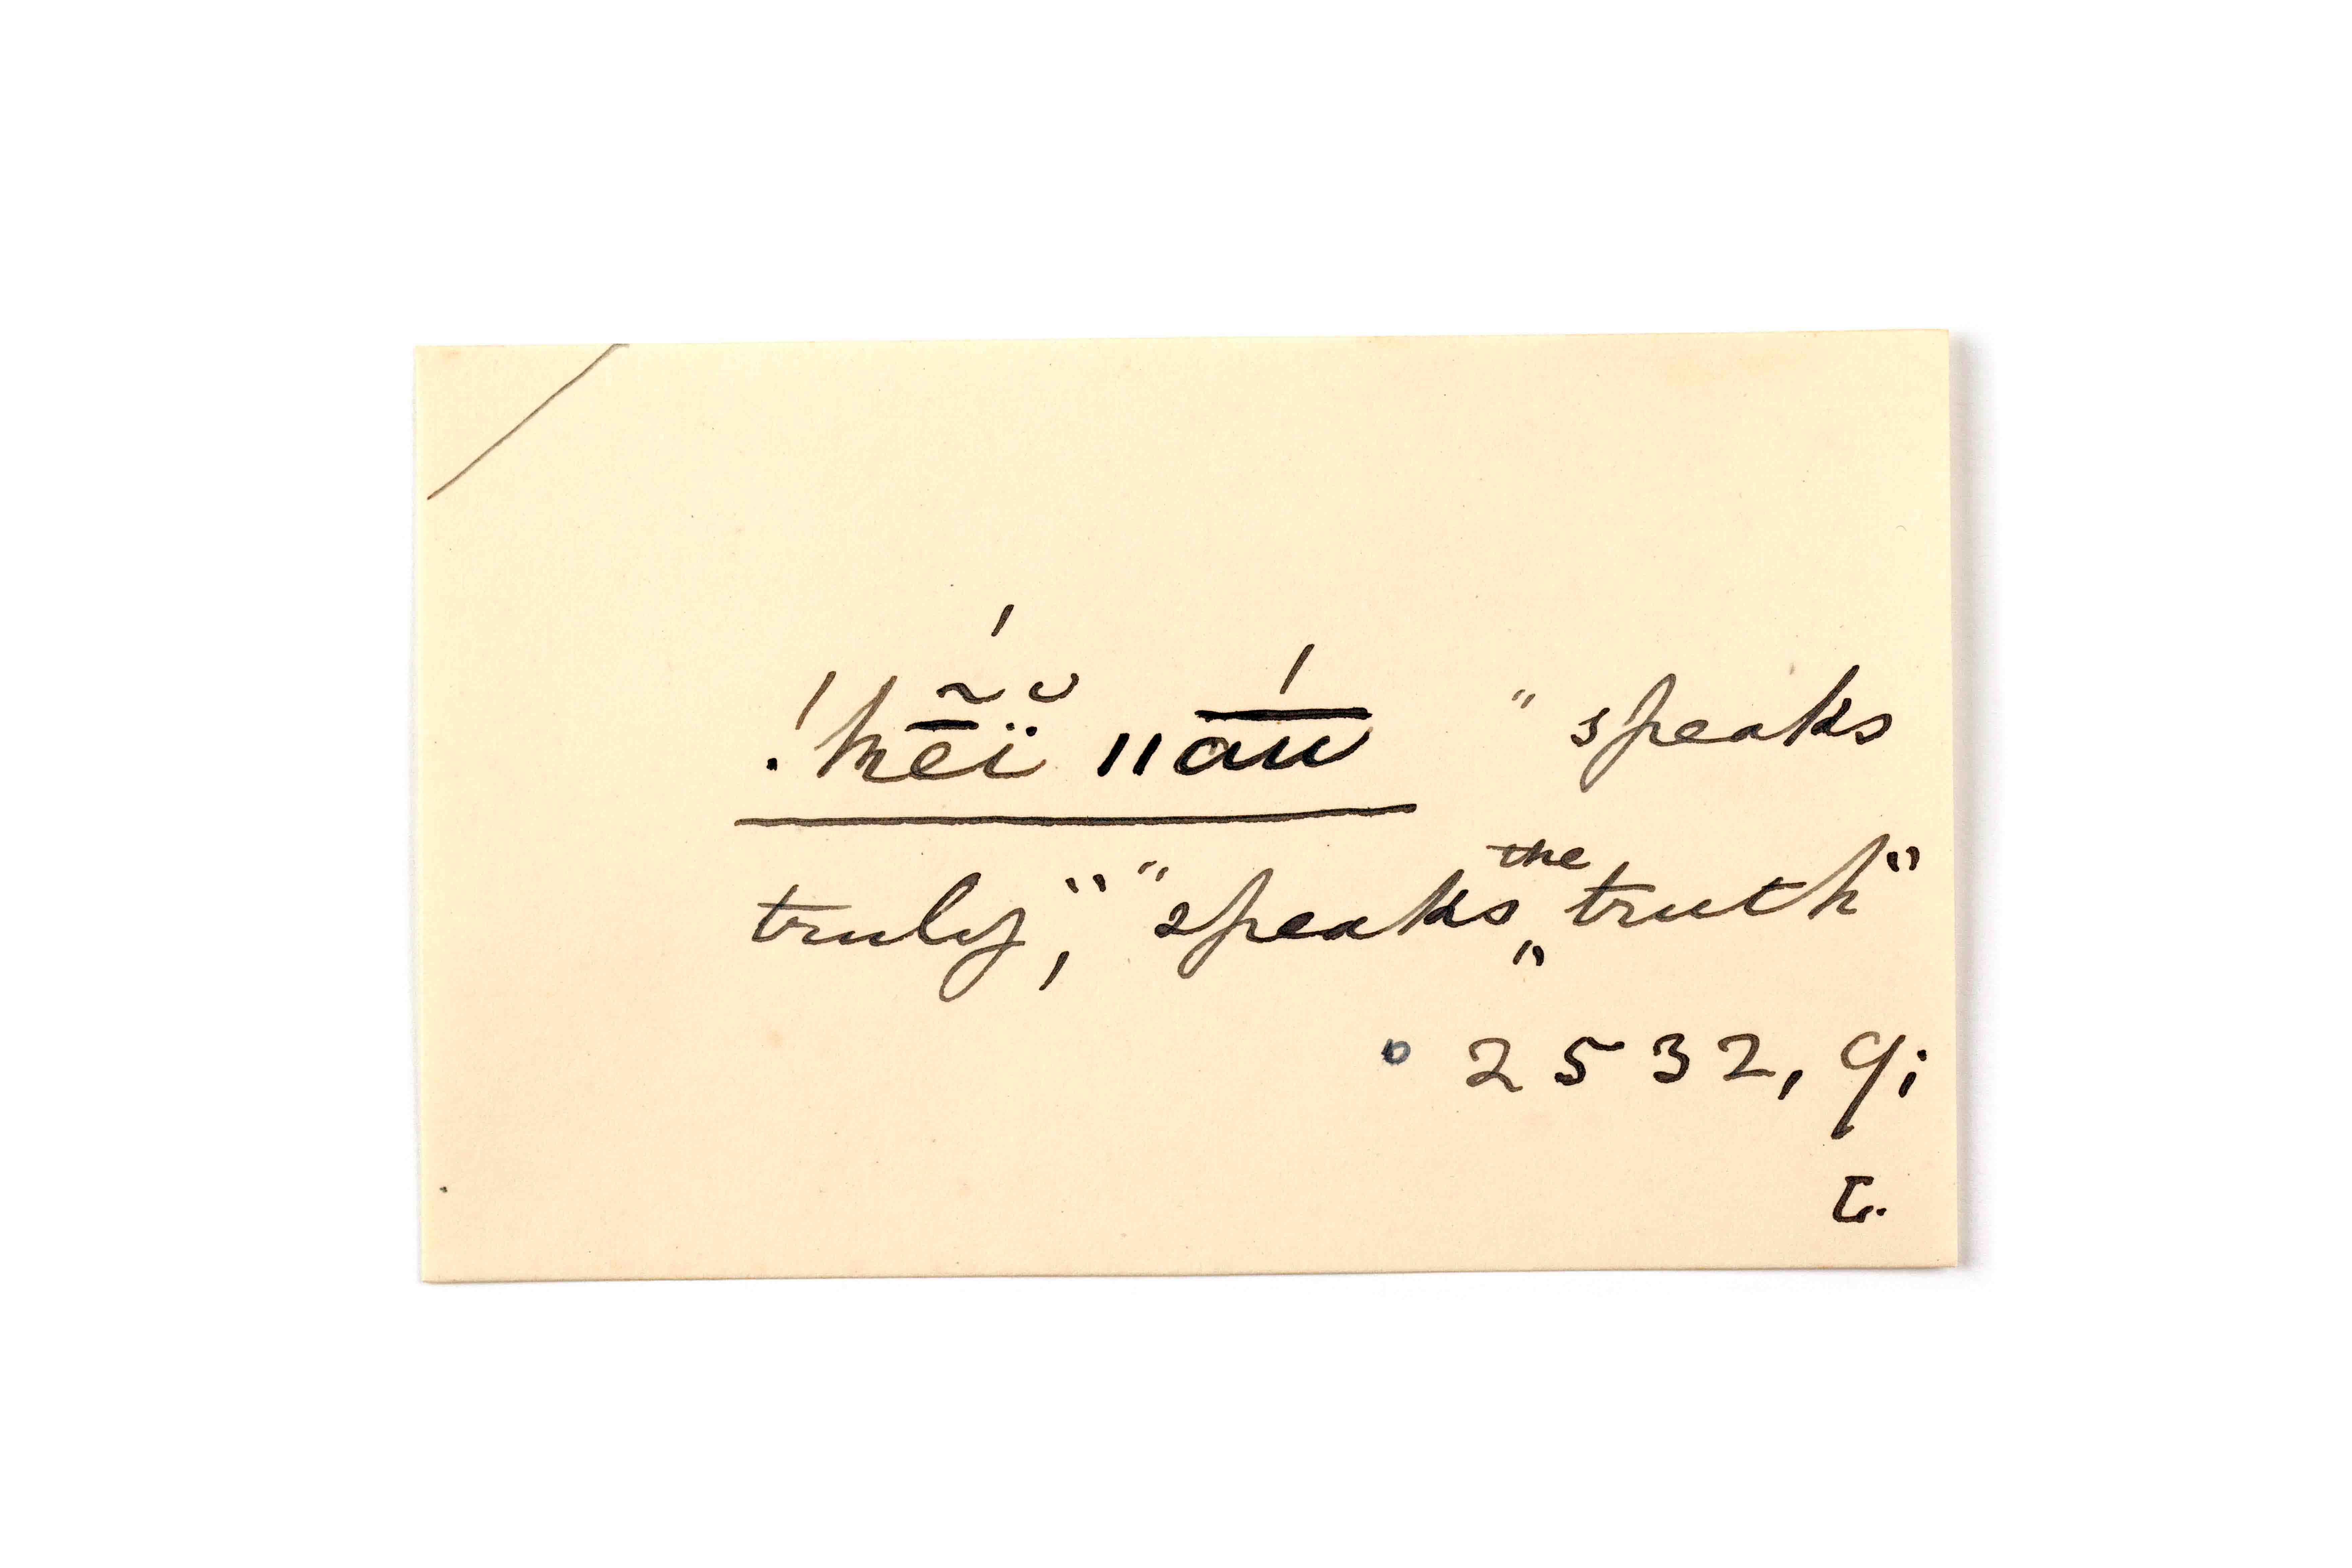 !k̄ẽ́ĭ̈ ǁa͞ú "speaks
truly," "speaks the truth"
2532, 9;
L.